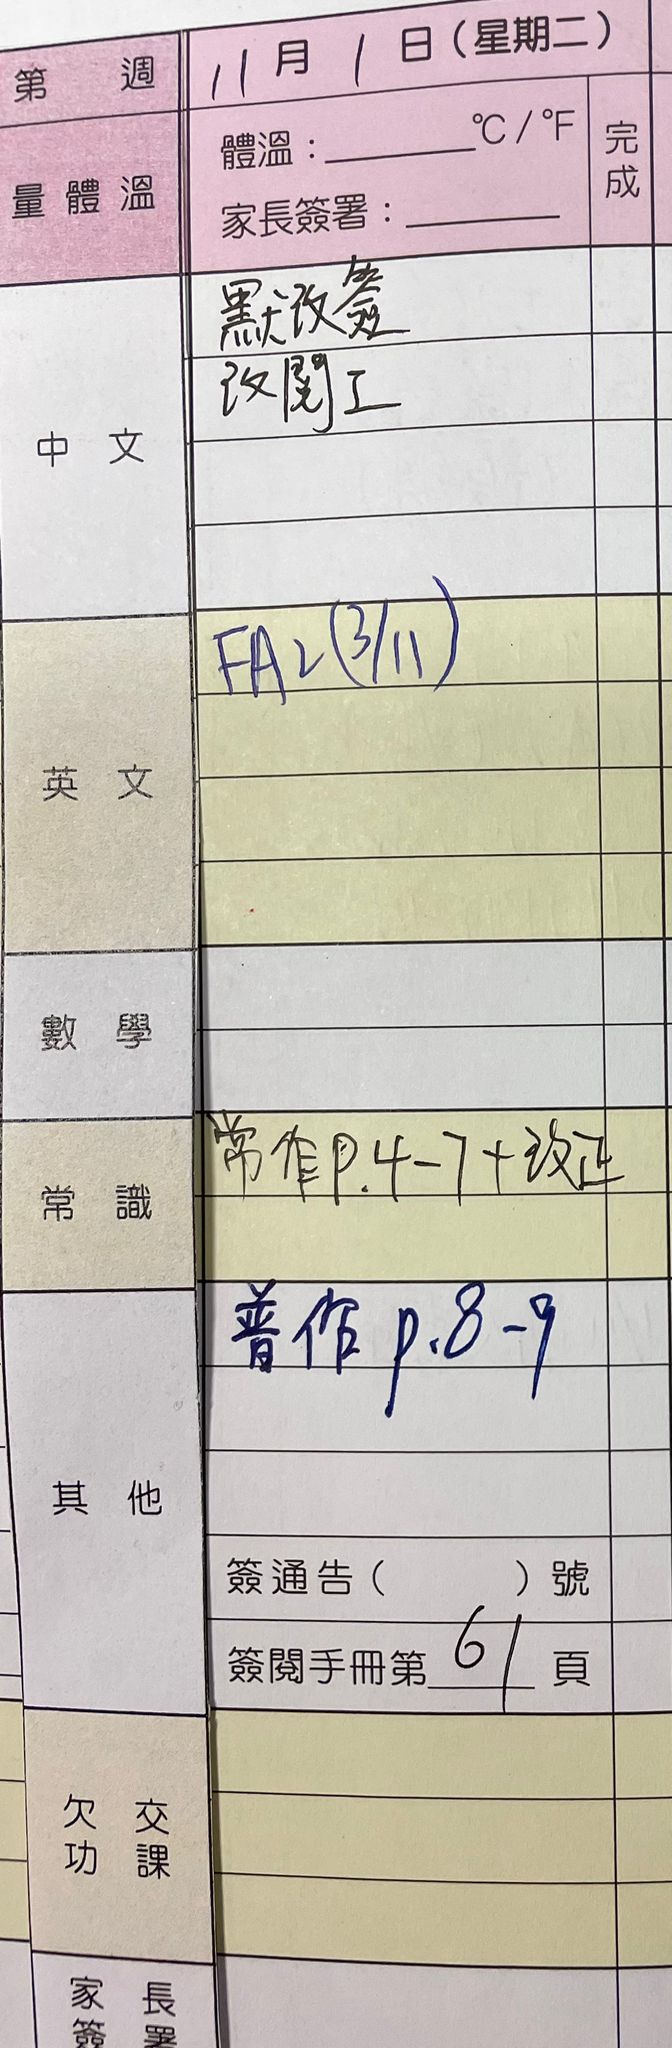 第 週 11月1日(星期二)
量體溫 體溫：______℃/℉ 完成
家長簽署：______
中文 默改簽
改閱工
英文 FA2(3/11)
數學
常識 常作P.4-7+改正
其他 普作p.8-9
簽通告( )號
簽閱手冊第61頁
欠交功課
家長簽署